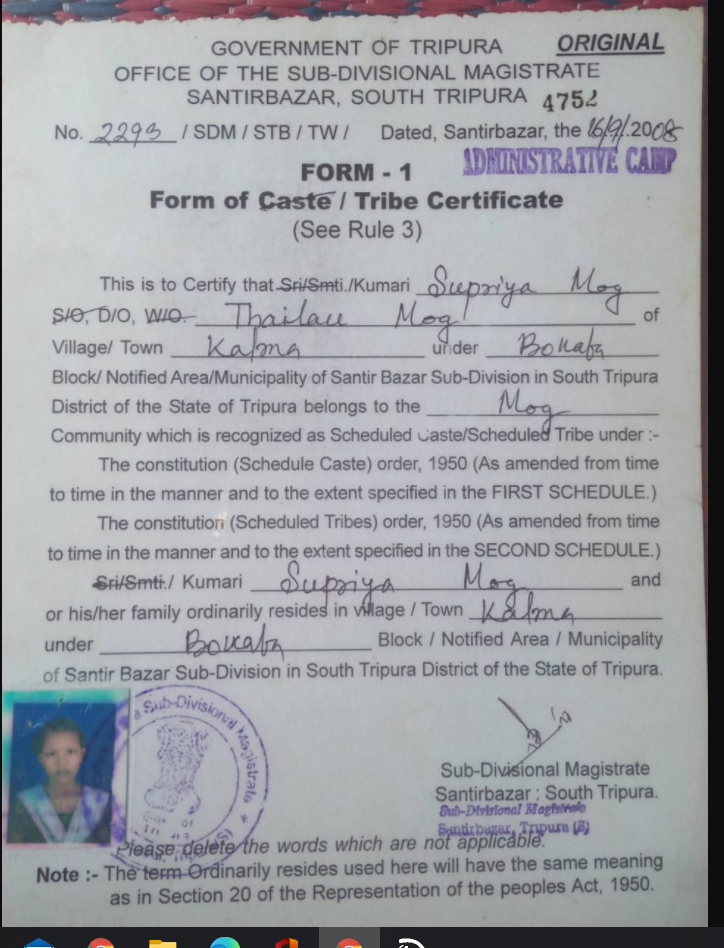 GOVERNMENT OF TRIPURA ORIGINAL
OFFICE OF THE SUB-DIVISIONAL MAGISTRATE
SANTIRBAZAR, SOUTH TRIPURA 4752
No. 2293 / SDM / STB / TW / Dated, Santirbazar, the 16/9/.2008
ADMINISTRATIVE CAMP
FORM - 1
Form of Caste / Tribe Certificate
(See Rule 3)
This is to Certify that Sri/Smti./Kumari Supriya Mog
S/O, D/O, W/O. Thailau Mog of
Village/ Town Kalma under Bokafa
Block/ Notified Area/Municipality of Santir Bazar Sub-Division in South Tripura
District of the State of Tripura belongs to the Mog
Community which is recognized as Scheduled Caste/Scheduled Tribe under :-
The constitution (Schedule Caste) order, 1950 (As amended from time
to time in the manner and to the extent specified in the FIRST SCHEDULE.)
The constitution (Scheduled Tribes) order, 1950 (As amended from time
to time in the manner and to the extent specified in the SECOND SCHEDULE.)
Sri/Smti./ Kumari Supriya Mog and
or his/her family ordinarily resides in village / Town Kalma
under Bokafa Block / Notified Area / Municipality
of Santir Bazar Sub-Division in South Tripura District of the State of Tripura.
Sub-Divisional Magistrate
Sub-Divisional Magistrate
Santirbazar : South Tripura.
Sub-Divisional Magistrate
Santirbazar, Tripura (S)
Please delete the words which are not applicable.
Note :- The term Ordinarily resides used here will have the same meaning
as in Section 20 of the Representation of the peoples Act, 1950.